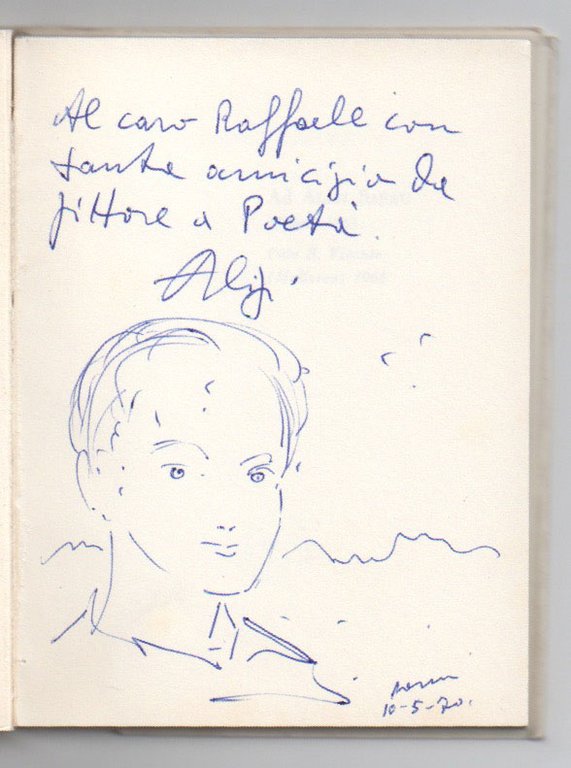 Al caro Raffaele con
tanta amicizia da
pittore a Poeta.
Aligi
Roma
10-5-70.